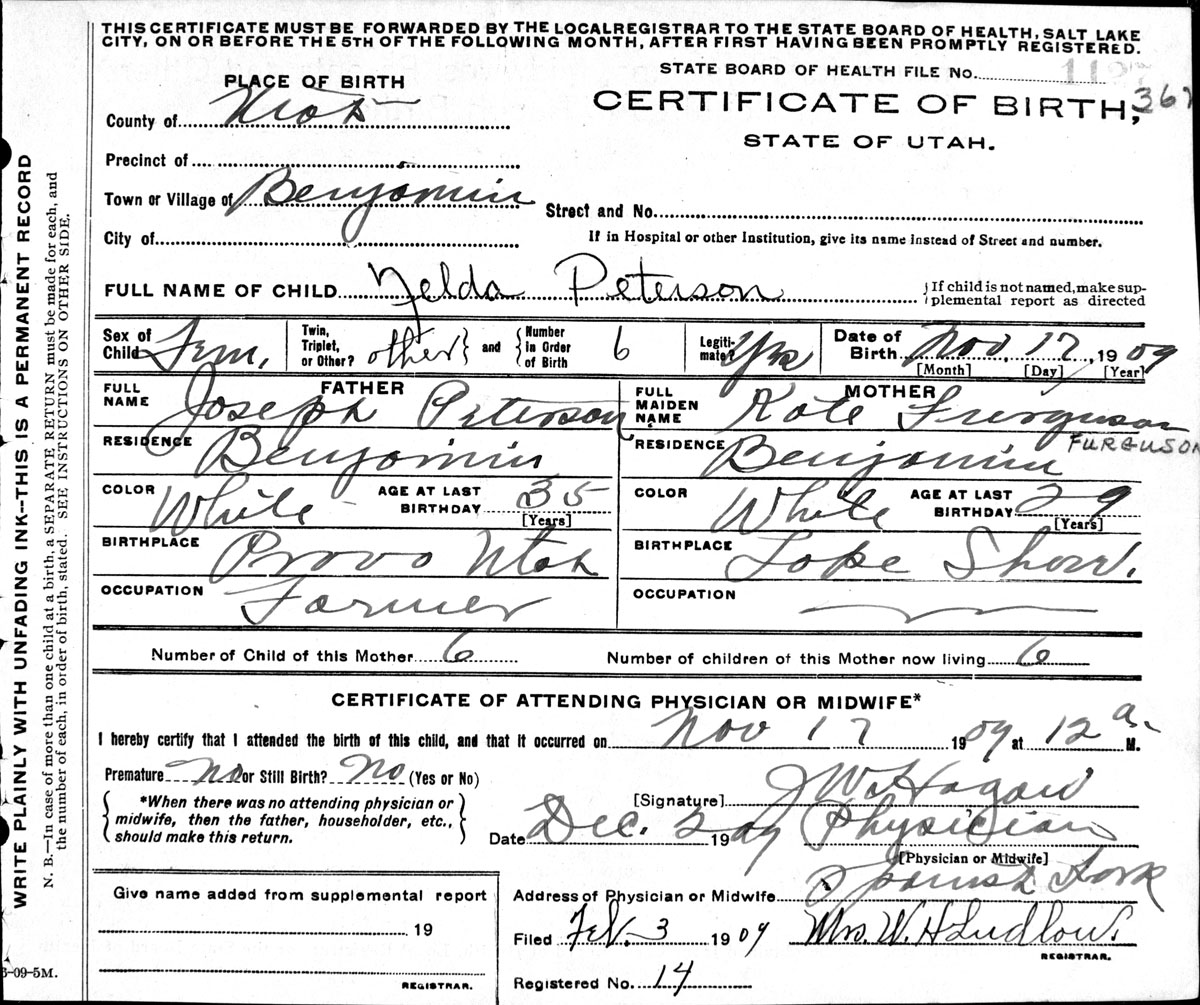 THIS CERTIFICATE MUST BE FORWARDED BY THE LOCAL REGISTRAR TO THE STATE BOARD OF HEALTH, SALT LAKE
CITY, ON OR BEFORE THE 5TH OF THE FOLLOWING MONTH, AFTER FIRST HAVING BEEN PROMPTLY REGISTERED.
PLACE OF BIRTH
STATE BOARD OF HEALTH FILE No.
County of Utah
CERTIFICATE OF BIRTH, 367
STATE OF UTAH.
Precinct of
Town or Village of Benjamin
Street and No.
City of
If in Hospital or other Institution, give its name instead of Street and number.
FULL NAME OF CHILD Zelda Peterson
{If child is not named, make sup-
plemental report as directed
Sex of Child Fem. Twin, Triplet, or Other? other and Number in Order of Birth 6 Legiti-mate? Yes Date of Birth Nov. 17, 1909
[Month] [Day] [Year]
FATHER
FULL NAME Joseph Peterson
RESIDENCE Benjamin
COLOR White AGE AT LAST BIRTHDAY 35
[Years]
BIRTHPLACE Provo Utah
OCCUPATION Farmer
MOTHER
FULL MAIDEN NAME Kate Furguson
FURGUSON
RESIDENCE Benjamin
COLOR White AGE AT LAST BIRTHDAY 29
[Years]
BIRTHPLACE Lake Shore.
OCCUPATION
Number of Child of this Mother 6 Number of children of this Mother now living 6
CERTIFICATE OF ATTENDING PHYSICIAN OR MIDWIFE*
I hereby certify that I attended the birth of this child, and that it occurred on Nov 17 1909 at 12 a. M.
Premature No or Still Birth? No (Yes or No)
*When there was no attending physician or
midwife, then the father, householder, etc.,
should make this return.
[Signature] J W Hagan
Date Dec. 2 1909 Physician
[Physician or Midwife]
Address of Physician or Midwife Spanish Fork
Filed Feb. 3 1909 Mrs. W. H Ludlow.
REGISTRAR.
Registered No. 14
Give name added from supplemental report
19
REGISTRAR.
3-09-5M.
WRITE PLAINLY WITH UNFADING INK--THIS IS A PERMANENT RECORD
N. B.—In case of more than one child at a birth, a SEPARATE RETURN must be made for each, and
the number of each, in order of birth, stated. SEE INSTRUCTIONS ON OTHER SIDE.